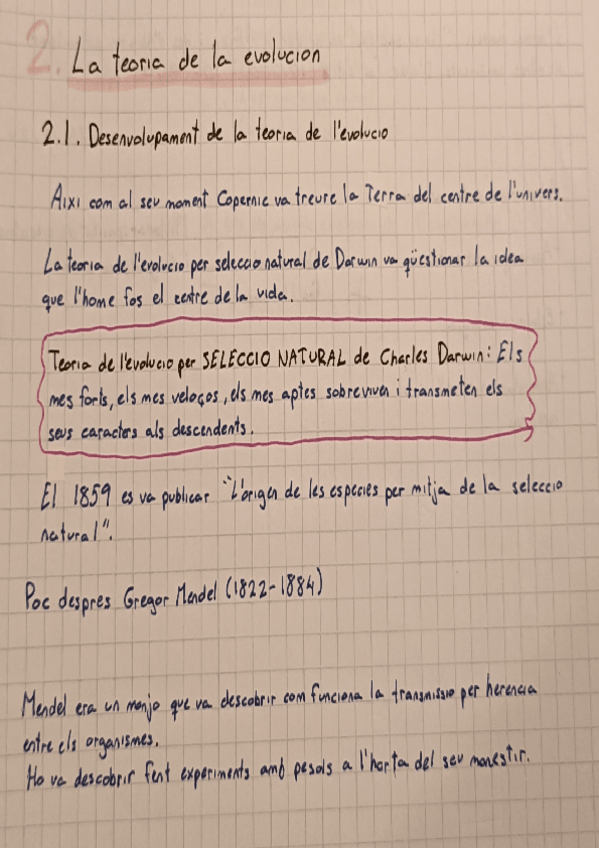 2. La teoria de la evolucion
2.1. Desenvolupament de la teoria de l'evolucio
Aixi com al seu moment Copernic va treure la Terra del centre de l'univers.
La teoria de l'evolucio per seleccio natural de Darwin va qüestionar la idea
que l'home fos el centre de la vida.
Teoria de l'evolucio per SELECCIO NATURAL de Charles Darwin: Els
mes forts, els mes veloços, els mes aptes sobreviven i transmeten els
seus caracters als descendents.
El 1859 es va publicar "L'origen de les especies per mitja de la seleccio
natural".
Poc despres Gregor Mendel (1822-1884)
Mendel era un monjo que va descobrir com funciona la transmissio per herencia
entre els organismes.
Ho va descobrir fent experiments amb pesols a l'horta del seu monestir.